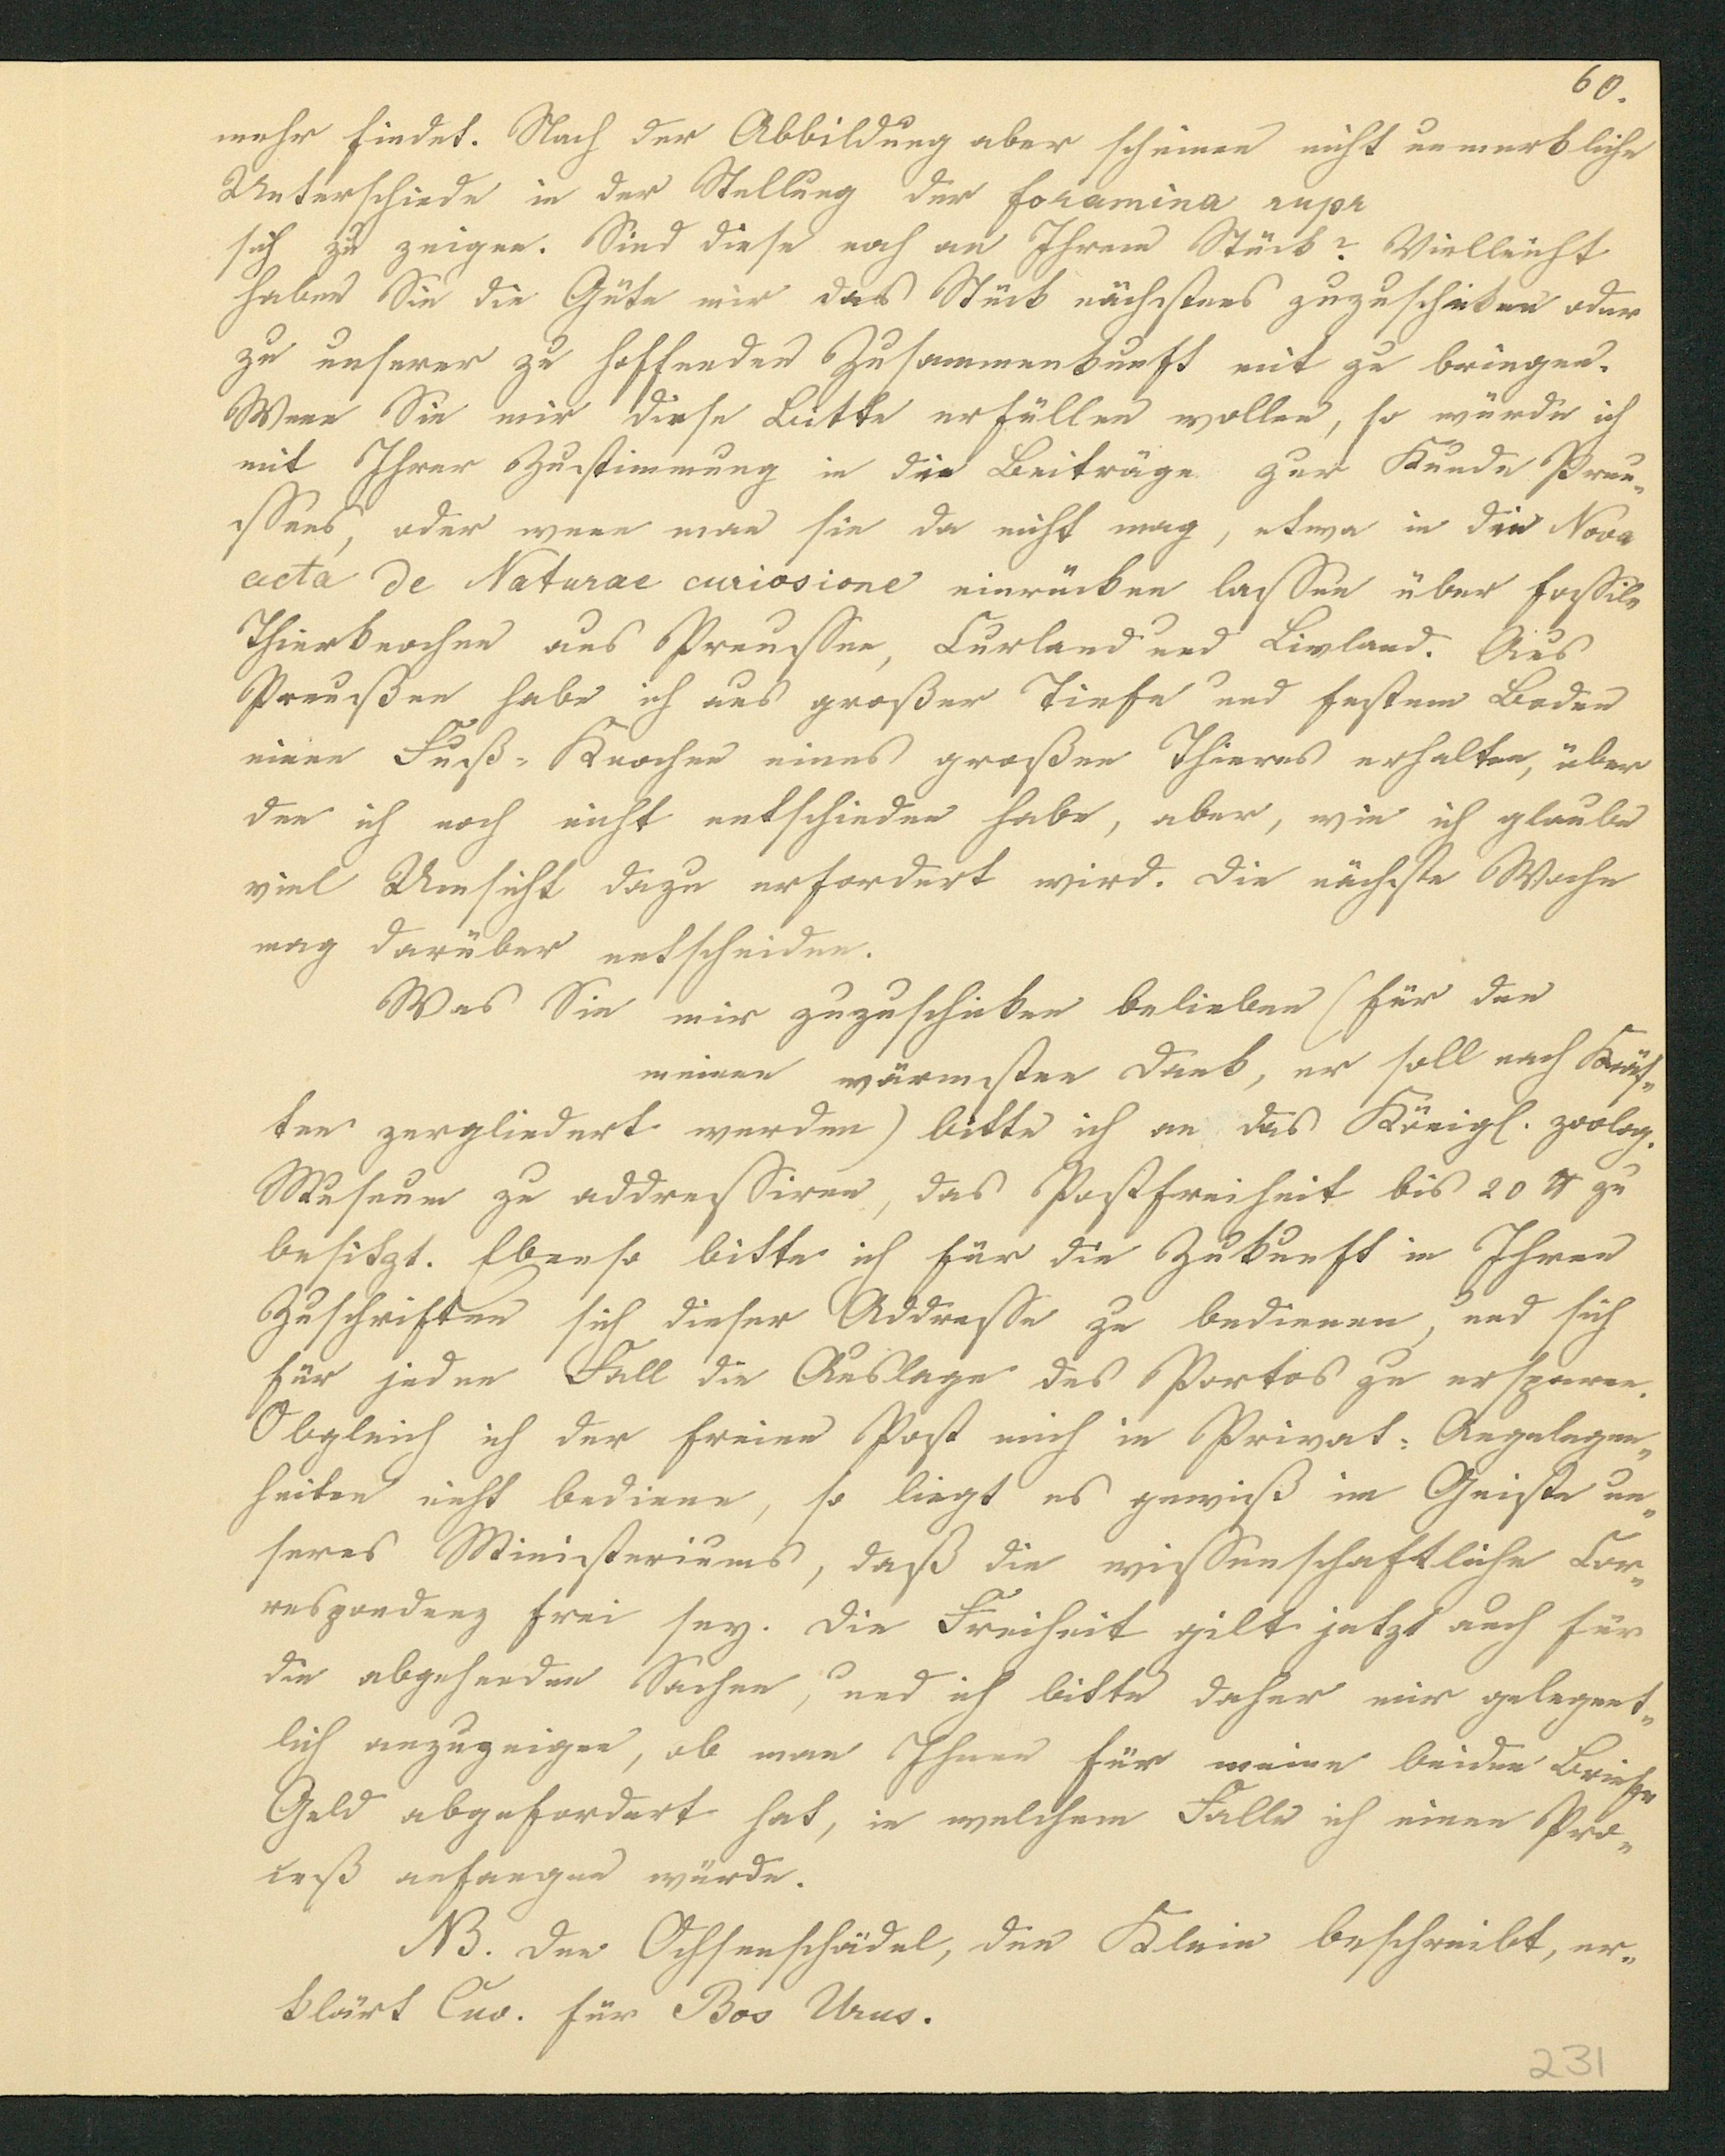 60.
mehr findet. Nach der Abbildung aber scheinen nicht unmerkliche
Unterschiede in der Stellung der foramina supr
sich zu zeigen. Sind diese noch an Ihrem Stück? Vielleicht
haben Sie die Güte mir das Stück nächstens zuzuschicken oder
zu unserer zu hoffenden Zusammenkunft mit zu bringen.
Wenn Sie mir diese Bitte erfüllen wollen, so würde ich
mit Ihrer Zustimmung in die Beiträge zur Kunde Preu-
ssens, oder wenn man sie da nicht mag, etwa in die Nova
acta de Naturae curiosione einrücken lassen über fossile
Thierknochen aus Preussen, Curland und Livland. Aus
Preußen habe ich aus großer Tiefe und festem Boden
einen Fuß-Knochen eines großen Thieres erhalten, über
den ich noch nicht entschieden habe, aber, wie ich glaube
viel Umsicht dazu erfordert wird. Die nächste Woche
mag darüber entscheiden.
Was Sie mir zuzuschicken belieben (für den
meinen wärmsten Dank, er soll nach Kräf-
ten zergliedert werden) bitte ich an das Königl. zoolog.
Museum zu addressiren, das Postfreiheit bis 20 ℔ zu
besitzt. Ebenso bitte ich für die Zukunft in Ihren
Zuschriften sich dieser Addresse zu bedienen, und sich
für jeden Fall die Auslage des Portos zu ersparen.
Obgleich ich der freien Post mich in Privat-Angelegen-
heiten nicht bediene, so liegt es gewiß im Geiste un-
seres Ministeriums, daß die wissenschaftliche Cor-
respondenz frei sey. Die Freiheit gilt jetzt auch für
die abgehenden Sachen, und ich bitte daher mir gelegent-
lich anzuzeigen, ob man Ihnen für meine beiden Briefe
Geld abgefordert hat, in welchem Falle ich einen Pro-
ceß anfangen würde.
NB. Den Ochsenschädel, den Klein beschreibt, er-
klärt Cuv. für Bos Urus.
231